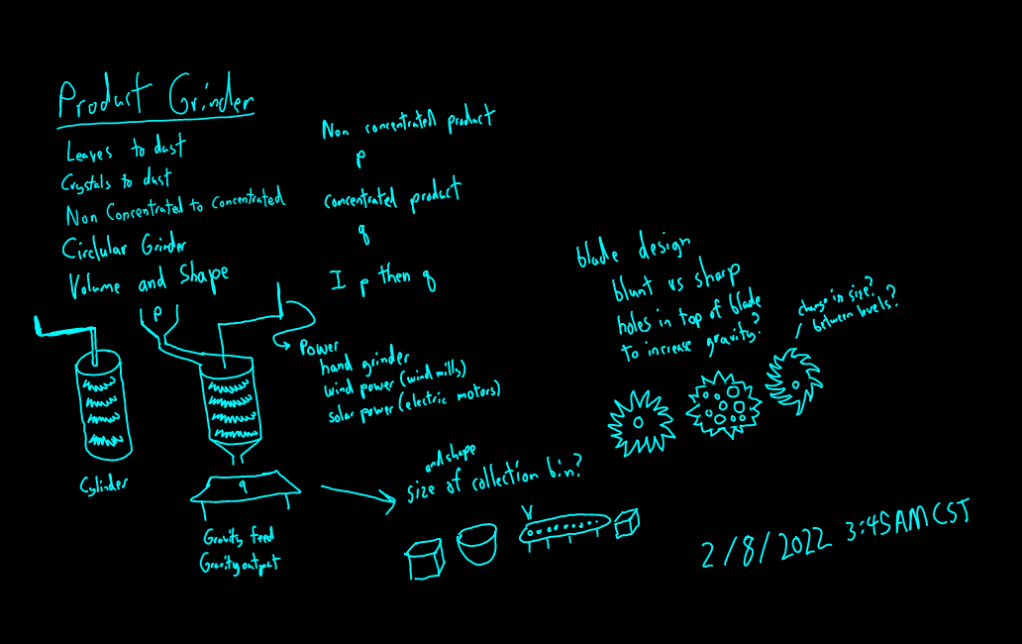 Product Grinder
Leaves to dust
Crystals to dust
Non Concentrated to Concentrated
Circlular Grinder
Volume and Shape
Non concentrated product
p
concentrated product
q
I p then q
p
Power
hand grinder
wind power (wind mills)
solar power (electric motors)
Cylinder
q
Gravity feed
Gravity output
and shape
size of collection bin?
blade design
blunt vs sharp
holes in top of blade
to increase gravity?
change in size?
between levels?
2/8/2022 3:45AM CST